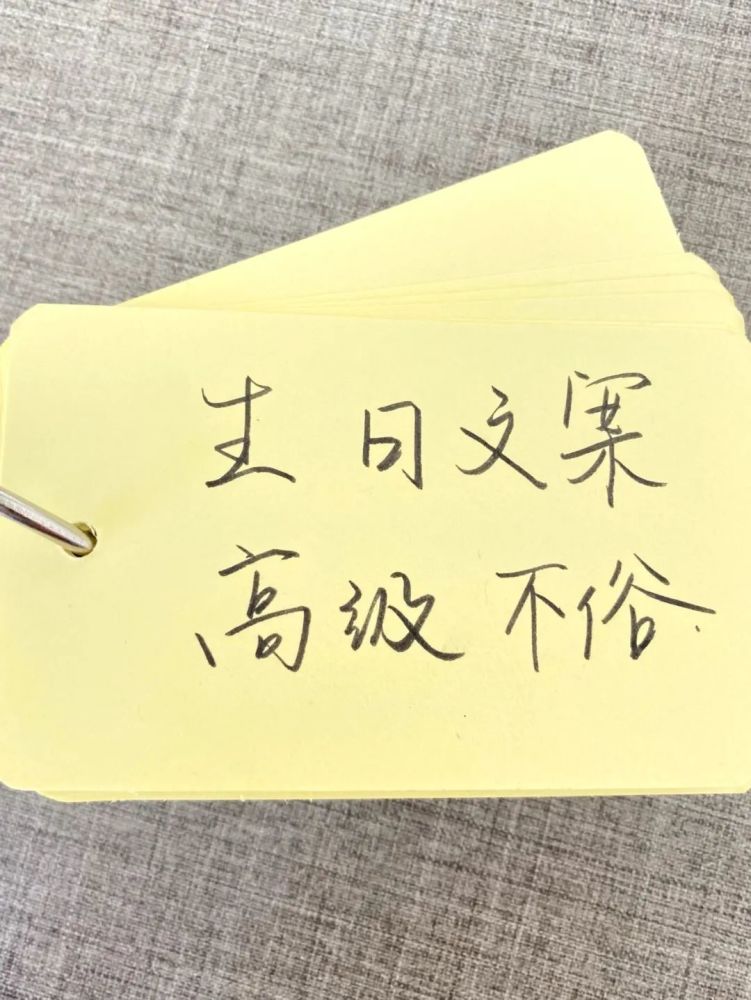 生日文案
高级不俗